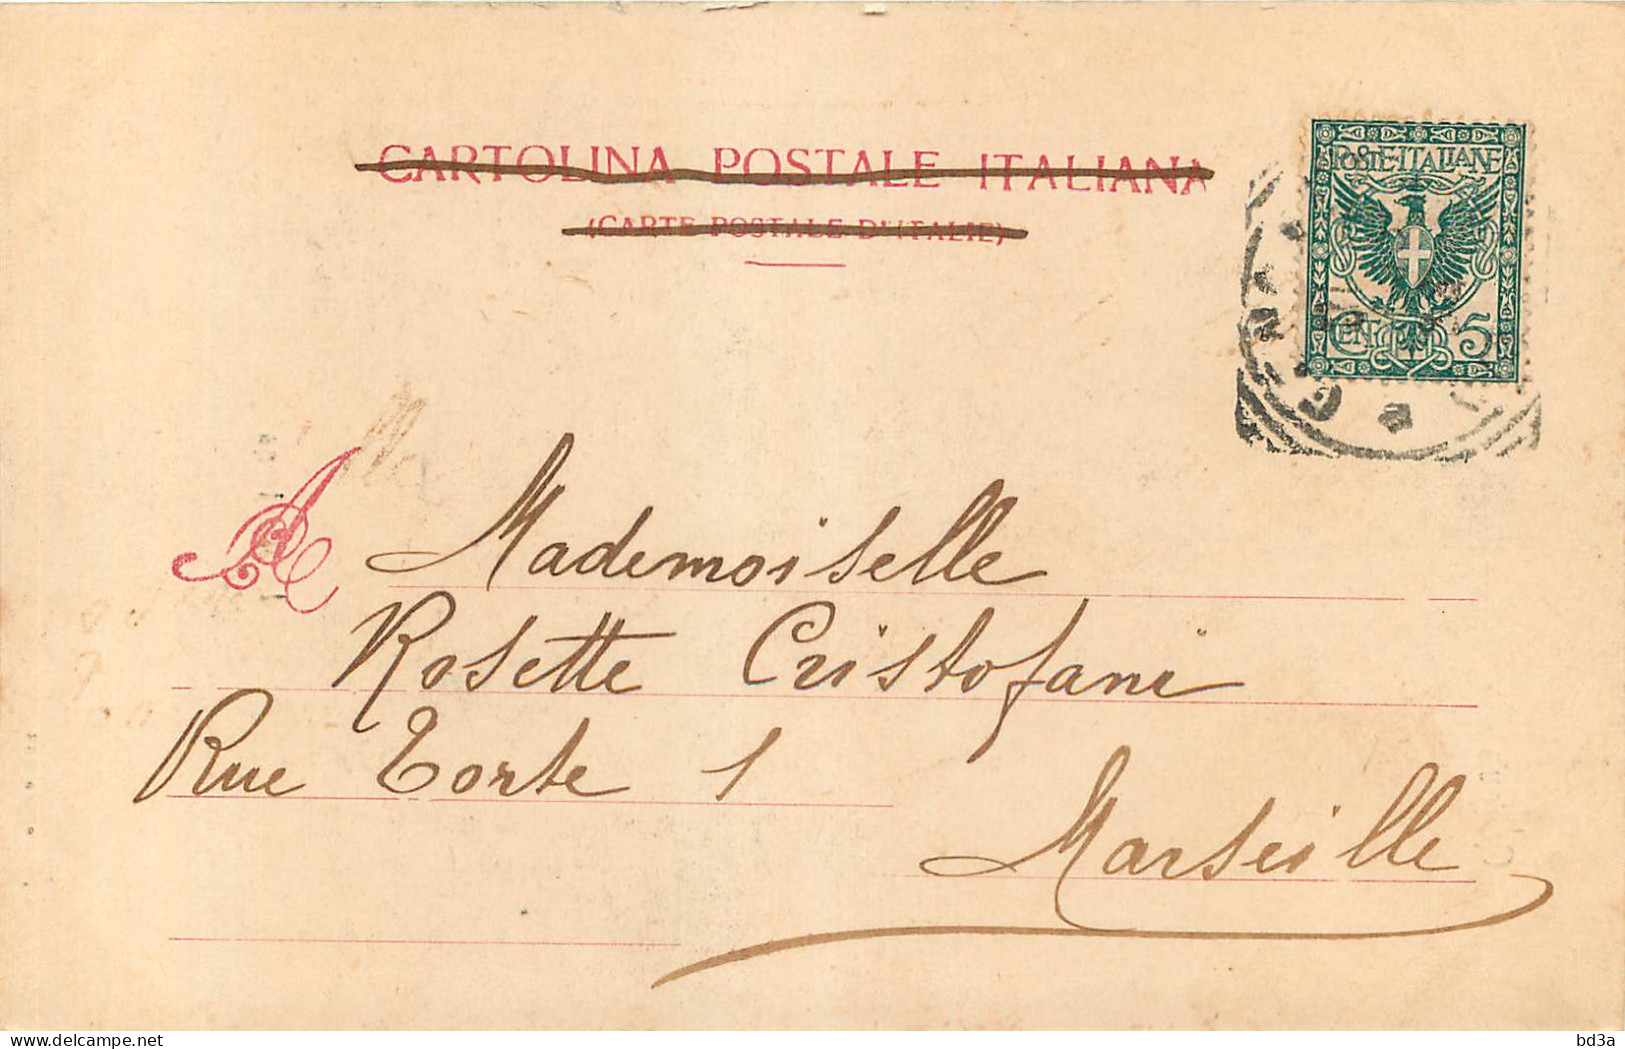 CARTOLINA POSTALE ITALIANA
(CARTE POSTALE D'ITALIE)
POSTE·ITALIANE
CENT. 5
A Mademoiselle
Rosette Cristofani
Rue Torte 1
Marseille
delcampe.net
bd3a